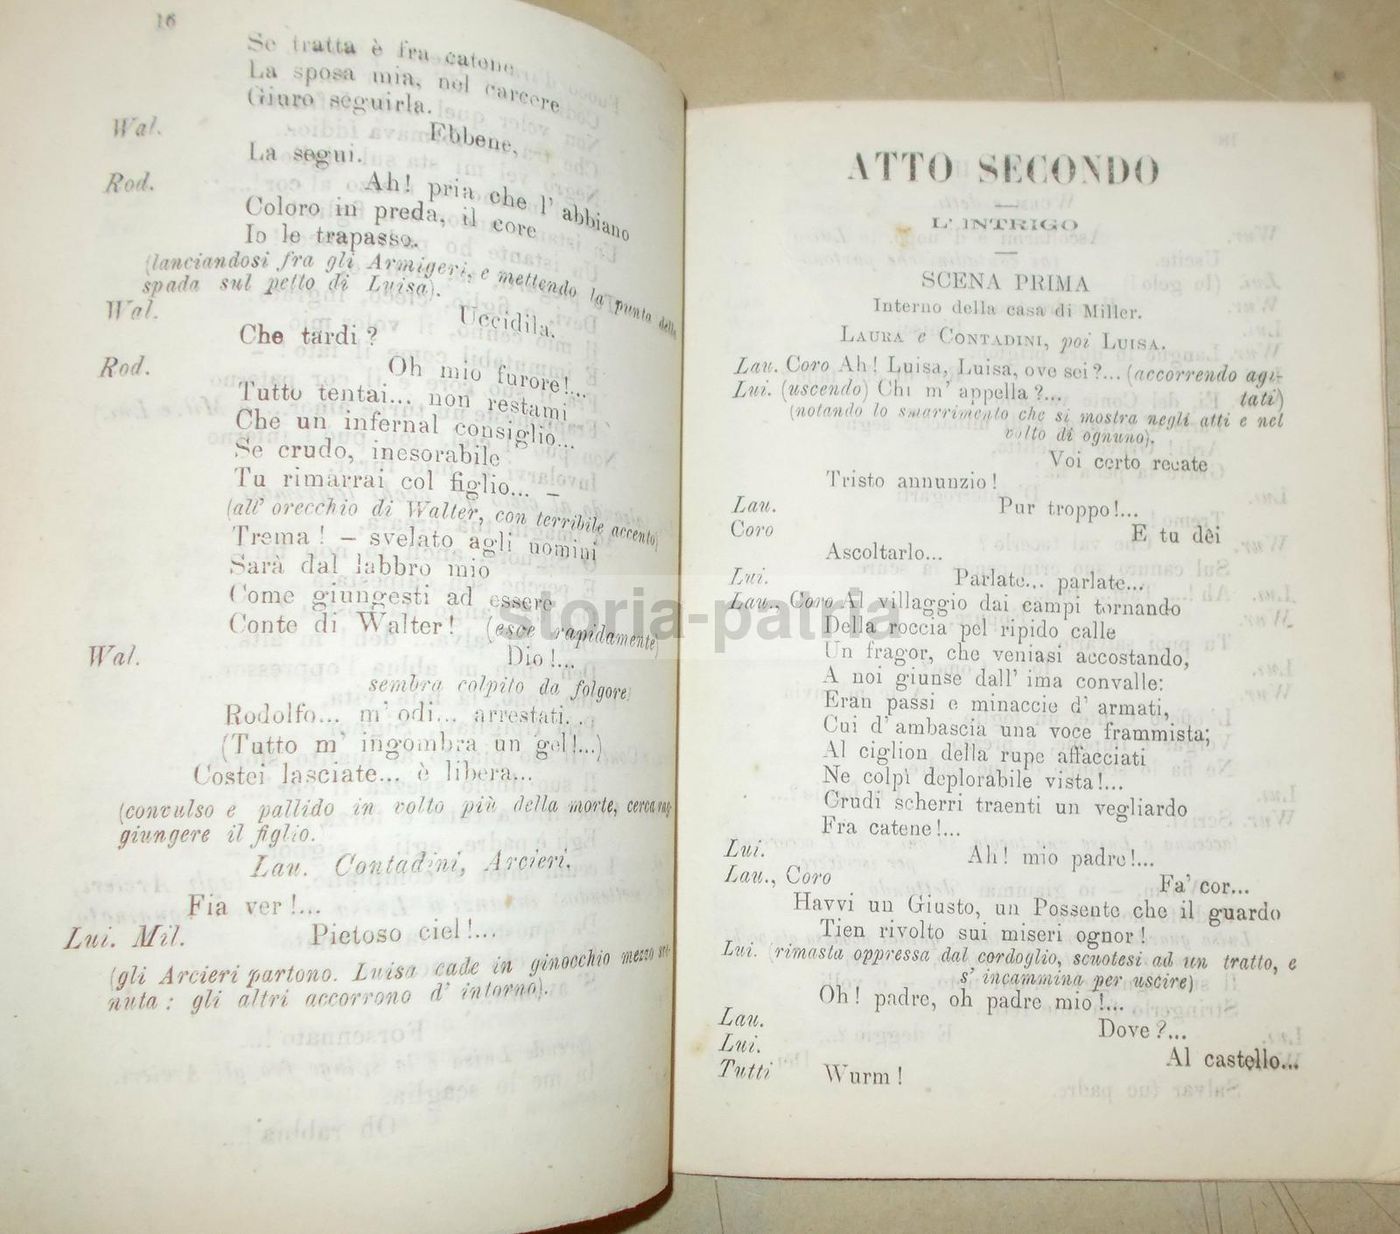 16
Se tratta è fra catene
La sposa mia, nel carcere
Giuro seguirla.
Wal. Ebbene,
La segui.
Rod. Ah! pria che l' abbiano
Coloro in preda, il core
Io le trapasso.
(lanciandosi fra gli Armigeri, e mettendo la punta della
spada sul petto di Luisa).
Wal. Uccidila.
Che tardi?
Rod. Oh mio furore!...
Tutto tentai... non restami
Che un infernal consiglio...
Se crudo, inesorabile
Tu rimarrai col figlio... —
(all' orecchio di Walter, con terribile accento)
Trema! — svelato agli uomini
Sarà dal labbro mio
Come giungesti ad essere
Conte di Walter! (esce rapidamente)
Wal. Dio!...
sembra colpito da folgore
Rodolfo... m' odi... arrestati...
(Tutto m' ingombra un gel!...)
Costei lasciate... è libera...
(convulso e pallido in volto più della morte, cerca rag-
giungere il figlio.
Lau. Contadini, Arcieri.
Fia ver!...
Lui. Mil. Pietoso ciel!...
(gli Arcieri partono. Luisa cade in ginocchio mezzo sve-
nuta: gli altri accorrono d' intorno).
ATTO SECONDO
L' INTRIGO
SCENA PRIMA
Interno della casa di Miller.
LAURA e CONTADINI, poi LUISA.
Lau. Coro Ah! Luisa, Luisa, ove sei?... (accorrendo agi-
tati)
Lui. (uscendo) Chi m' appella?...
(notando lo smarrimento che si mostra negli atti e nel
volto di ognuno).
Voi certo recate
Tristo annunzio!
Lau. Pur troppo!...
Coro E tu dêi
Ascoltarlo...
Lui. Parlate... parlate...
Lau., Coro Al villaggio dai campi tornando
Della roccia pel ripido calle
Un fragor, che veniasi accostando,
A noi giunse dall' ima convalle:
Eran passi e minaccie d' armati,
Cui d' ambascia una voce frammista;
Al ciglion della rupe affacciati
Ne colpì deplorabile vista!...
Crudi scherri traenti un vegliardo
Fra catene!...
Lui. Ah! mio padre!...
Lau., Coro Fa' cor...
Havvi un Giusto, un Possente che il guardo
Tien rivolto sui miseri ognor!
Lui. (rimasta oppressa dal cordoglio, scuotesi ad un tratto, e
s' incammina per uscire)
Oh! padre, oh padre mio!...
Lau. Dove?...
Lui. Al castello...
Tutti Wurm!
storia-patria